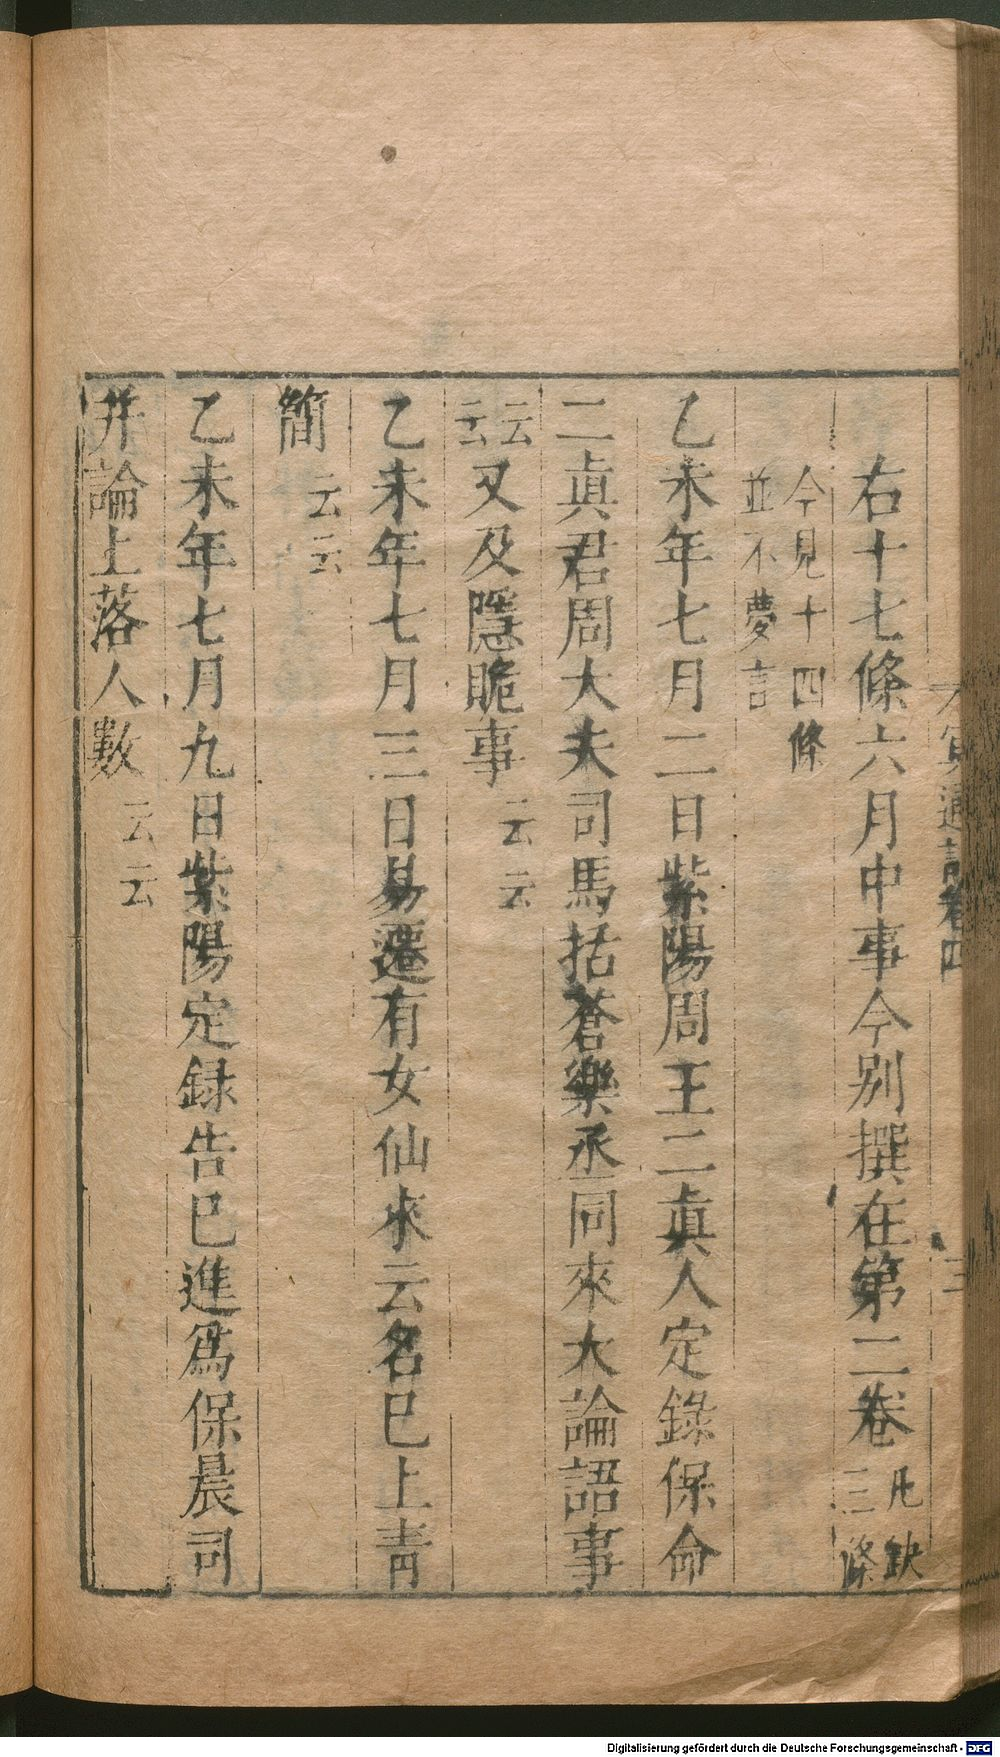 右十七條六月中事今別撰在第二卷凡缺三條
今見十四條
並不夢言
乙未年七月二日紫陽周王二眞人定錄保命
二眞君周大夫司馬括蒼樂丞同來大論語事
云云又及隱脆事云云
乙未年七月三日易遷有女仙來云名巳上青
簡云云
乙未年七月九日紫陽定録告巳進爲保晨司
并論上落人數云云
通記卷四
三
Digitalisierung gefördert durch die Deutsche Forschungsgemeinschaft - DFG